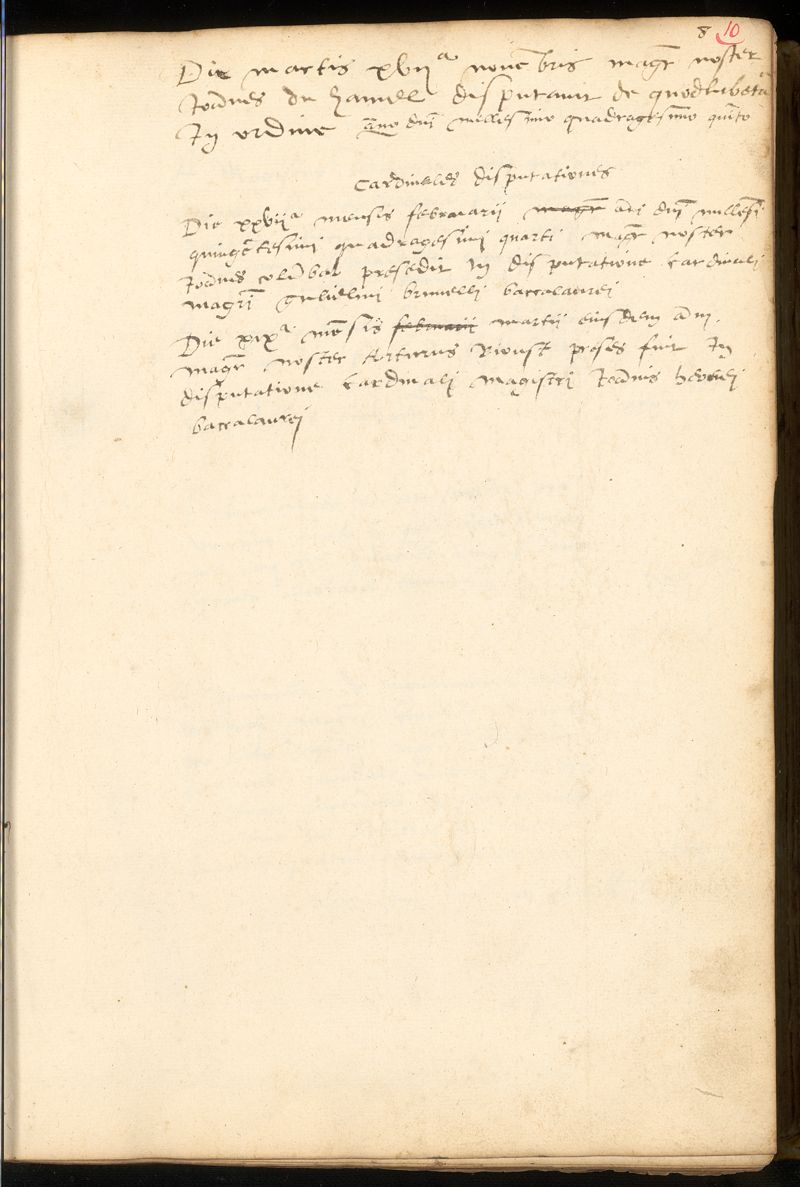 8 10
Die martis xvii^a nouẽbris magr̃ noster
Ioãnes du hamell disputauit de quodlibeta
In ordine Ãno dñi millesimo quadragesimo quĩto
Cardinales disputationes
Die xxvii^a mensis februarii magr̃ ãni dñi millesĩ
quingẽtesimi quadragesimi quarti magr̃ noster
Ioãnes colũbar presedit In disputatione cardinali
magrĩ guilielmi brunelli baccalaurei
Die xix^a mẽsis februarii martii eiusdem ãni
magr̃ noster Arturus preses fuit In
disputatione cardinali magistri Ioãnis
baccalaurei